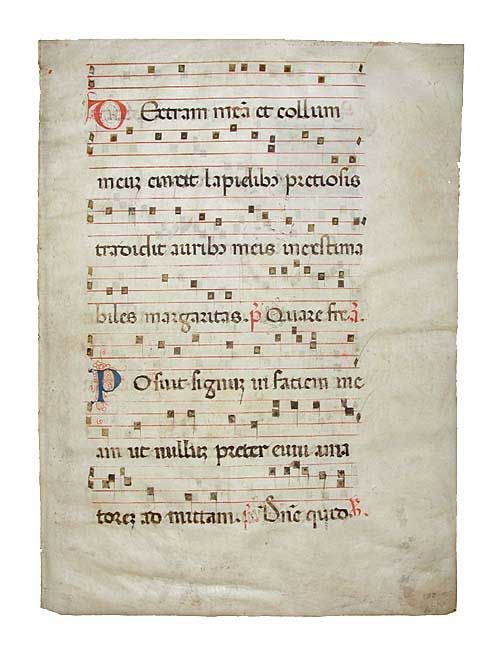 DExtram meā et collum
meuʒ cinxit lapidibɔ pretiosis
tradidit auribɔ meis inextima
biles margaritas. p̄ Quare fre.ā.
POsuit signuʒ in faciem me
am ut nulluʒ preter eum ama
toreʒ ad mittam. p̄s Dn̄e quid.